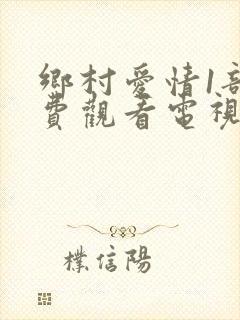 鄉村愛情1部
費觀看電視
樸信陽